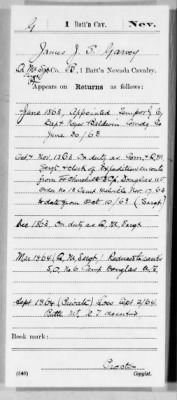 G 1 Batt'n Cav. Nev.
James J. P. Garvey
Q. M. Sgt., Co. B, 1 Batt'n Nevada Cavalry.
Appears on Returns as follows:
June 1863, Appointed Temporarily by
Capt Noyes Baldwin Comdg Co
June 30/63
Oct & Nov. 1863 On duty as Com. & Q.M.
Sergt & clerk of Expedition en route
from Ft Churchill to Camp Douglas U.T.
Order No
Nov. 17, 63
to date from Oct 10/63 (Sergt)
Dec 1863, On duty as Q. M. Sergt
Mar 1864 (Q. M. Sergt) Reduced to ranks
S.O. No 6 Camp Douglas U.T.
Sept 1864 (Private) Loss Sept 2/64
Battle Mt N.T. deserted
Book mark:
(546) Copyist.